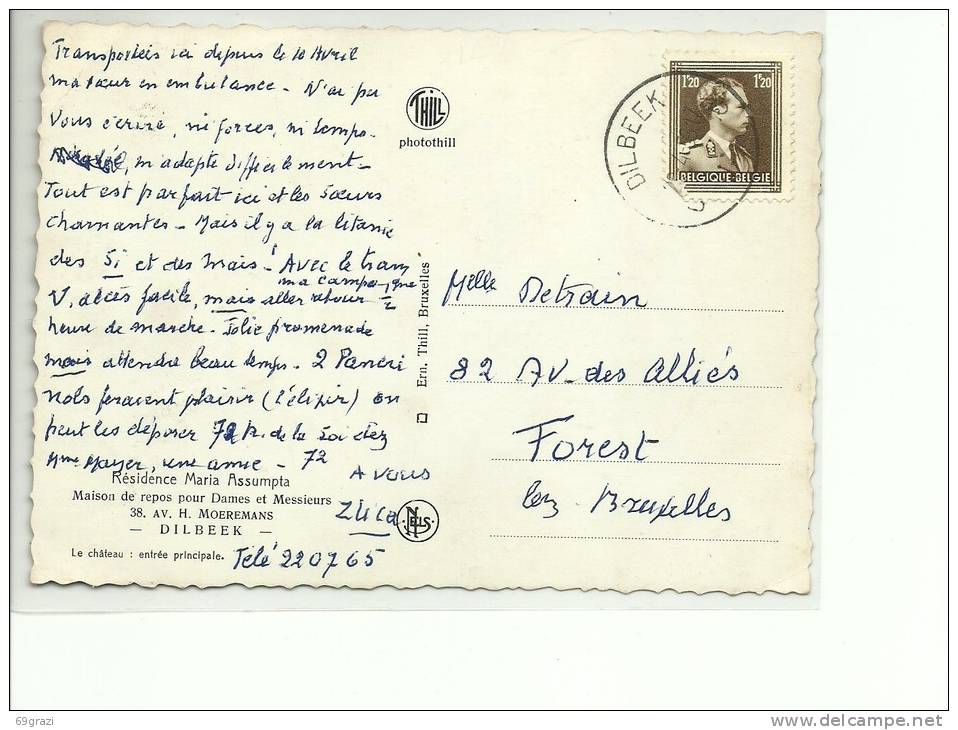 Transportées ici depuis le 10 Avril
ma sœur en embulance - N'ai pu
Vous écrire, ni forces, ni temps -
m'adapte difficilement -
Tout est parfait ici et les Sœurs
charmantes - Mais il y a la litanie
des Si et des mais! Avec le tram
ma campagne
V, accès facile, mais aller retour 1/2
heure de marche. Jolie promenade
mais attendre beau temps. 2 Pancri
nols feraient plaisir (l'élixir) on
peut les déposer 72 R. de la Loi chez
Mme Mayer, une amie - 72
A vous
Résidence Maria Assumpta
Maison de repos pour Dames et Messieurs
38. AV. H. MOEREMANS
— DILBEEK —
Le château : entrée principale.
Télé 220765
THILL
photothill
Ern. Thill, Bruxelles
NELS
DILBEEK
1'20 1'20
BELGIQUE-BELGIE
Melle Detrain
82 Av. des Alliés
Forest
lez Bruxelles
69grazi
delcampe.net